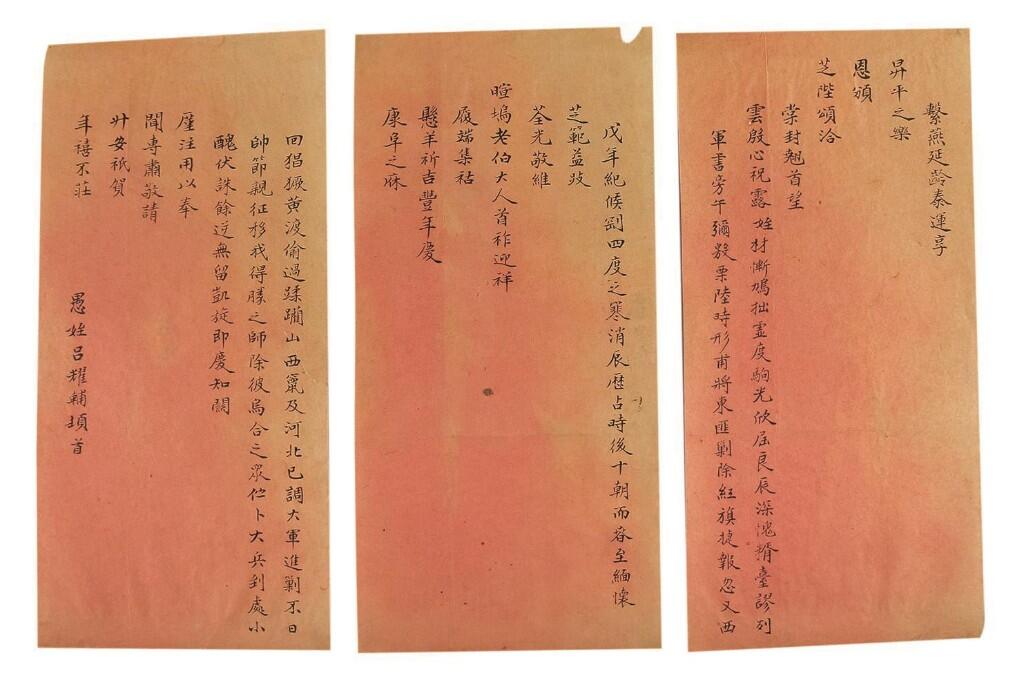 戊年紀候剛四度之寒消辰歷占時後十朝而春至緬懷
芝範益跂
荃光敬維
暄塢老伯大人首祚迎祥
履端集祜
懸羊祈吉豐年慶
康阜之庥
繫燕延齡泰運享
昇平之樂
恩頒
芝陛頌洽
棠封翹首望
雲殷心祝露姪材慚鳩拙虛度駒光欣屆良辰深愧壻臺謬列
軍書旁午彌殷栗陸時形甫將東匪剿除紅旗捷報忽又西
回猖獗黃渡偷過蹂躪山西竄及河北已調大軍進剿不日
帥節親征移我得勝之師除彼烏合之眾伫卜大兵到處小
醜伏誅餘逆無留凱旋即慶知關
廑注用以奉
聞專肅敬請
升安祇賀
年禧不莊
愚姪呂耀輔頓首